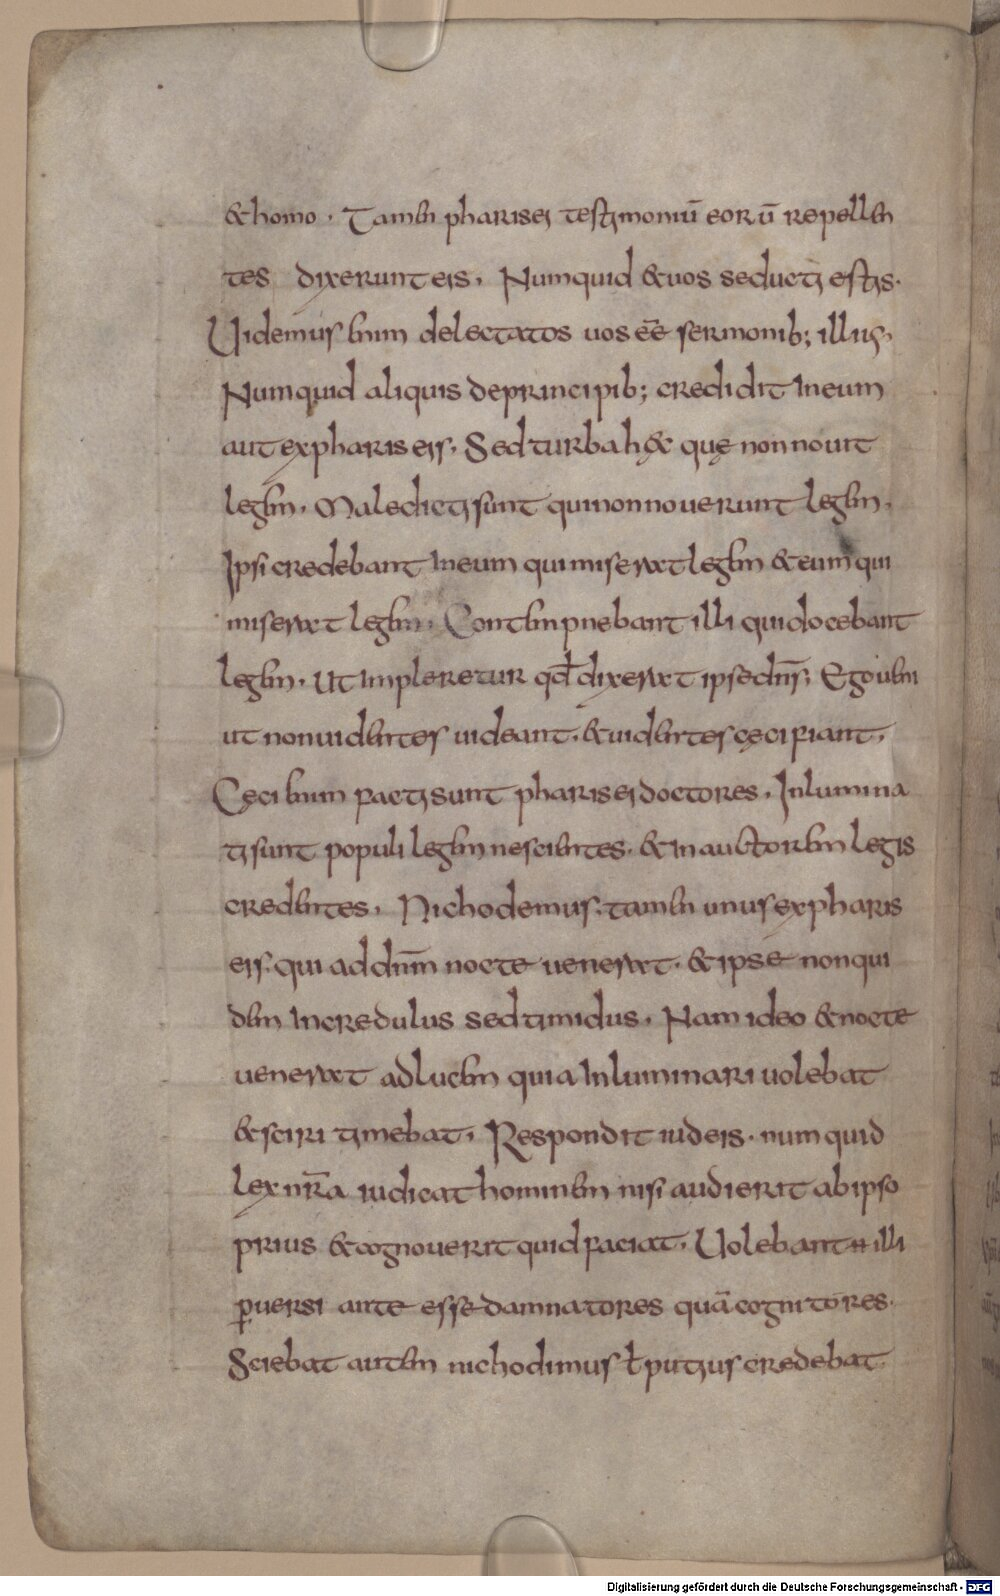 &homo . Tamen pharisei testimoniū eorū repellen
tes dixerunt eis . Numquid &uos seducti estis .
Uidemus enim delectatos uos eē̄ sermonib; illius .
Numquid aliquis deprincipib; credidit Ineum
aut expharis eis . Sed turba hęc quę non nouit
legem . Maledicti sunt qui non nouerunt legem .
Ipsi credebant Ineum qui miserat legem &eum qui
miserat legem . Contempnebant illi qui docebant
legem . Ut Impleretur qd̄ dixerat ipse dn̄s ; Ego ueni
ut non uidentes uideant . &uidentes cęci fiant .
Cęci enim facti sunt pharisei doctores . Inlumina
ti sunt populi legem nescientes . &In auctorem legis
credentes . Nichodemus . tamen unus expharis
eis . qui ad dn̄m nocte uenerat . &ipse non qui
dem Incredulus sed timidus . Nam ideo &nocte
uenerat ad lucem quia Inluminari uolebat
&sciri timebat . Respondit iudeis . numquid
lex nr̄a iudicat hominem nisi audierit ab ipso
prius &cognouerit quid faciat . Uolebant ╫ illi
ꝑuersi ante esse damnatores quā cognitores .
Sciebat autem nichodimus ɫ potius credebat .
Digitalisierung gefördert durch die Deutsche Forschungsgemeinschaft - DFG